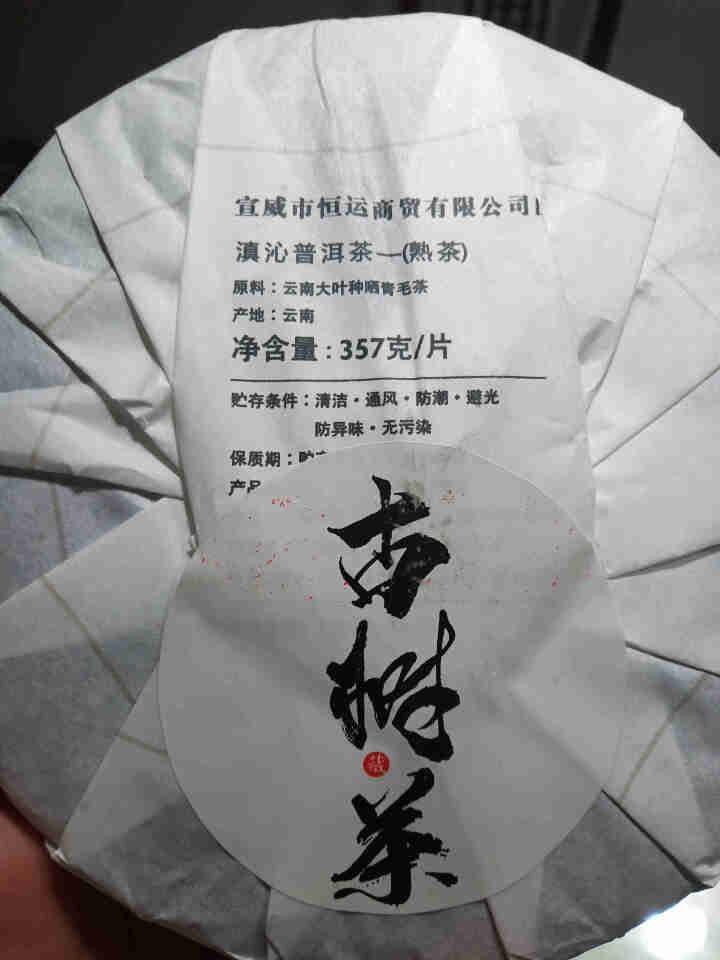 宣威市恒运商贸有限公司
滇沁普洱茶—(熟茶)
原料：云南大叶种晒青毛茶
产地：云南
净含量：357克/片
贮存条件：清洁·通风·防潮·避光
防异味·无污染
保质期：贮
产品
古树茶